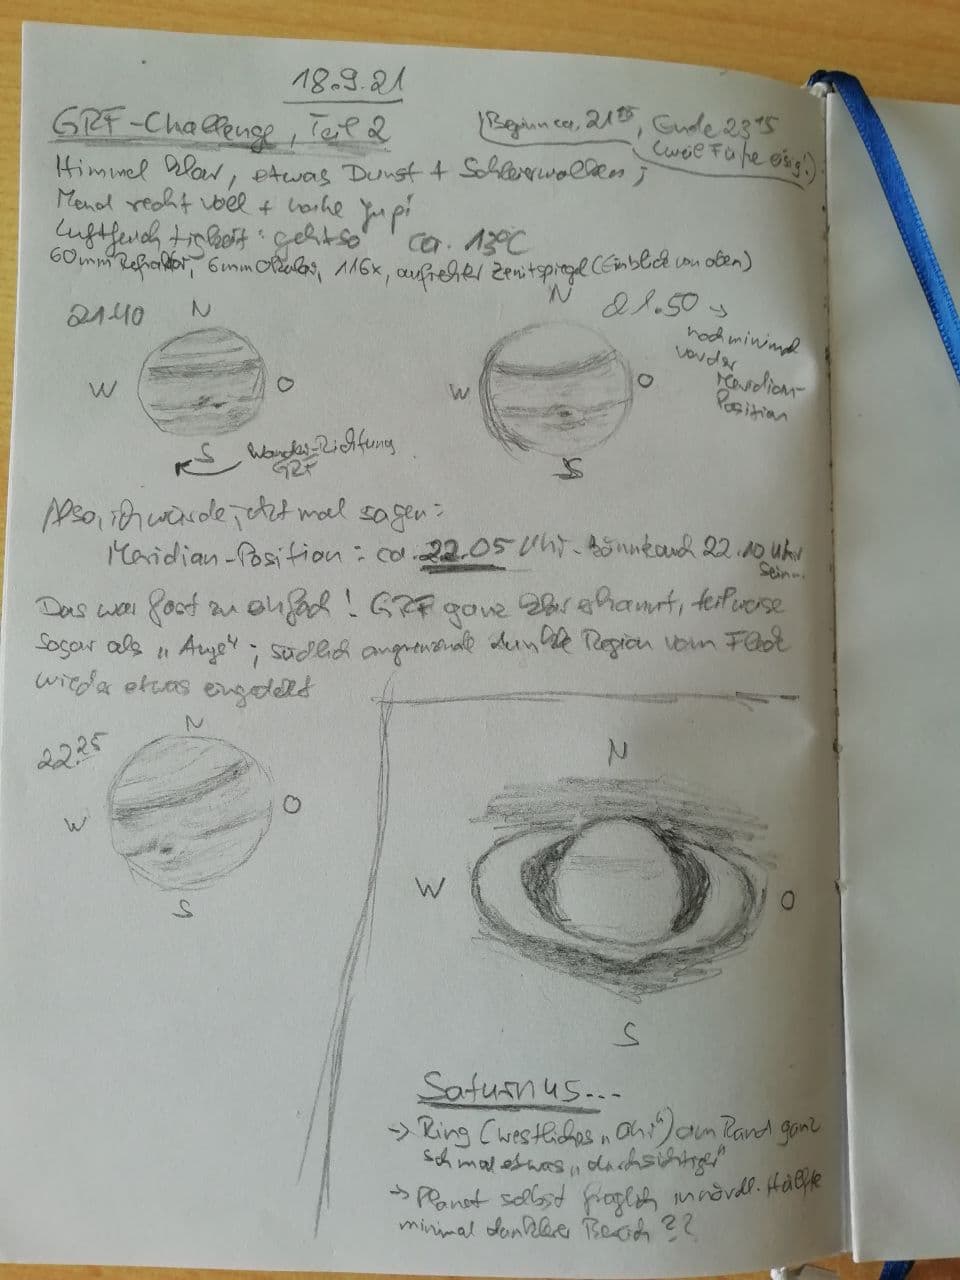 18.9.21
GRF-Challenge, Teil 2
(Beginn ca. 21¹⁵, Ende 23¹⁵
(weil Füße eisig!)
Himmel klar, etwas Dunst + Schleierwolken;
Mond recht voll + nahe Jupi
Luftfeuchtigkeit: geht so ca. 13°C
60mm Refraktor, 6mm Okular, 116x, aufrechter Zenitspiegel (Einblick von oben)
21.40
N
W
O
S
Wander-Richtung
GRF
N
21.50 →
noch minimal
vor der
Meridian-
Position
W
O
S
Also, ich würde jetzt mal sagen:
Meridian-Position: ca. 22.05 Uhr - könnt auch 22.10 Uhr
sein...
Das war fast zu einfach! GRF ganz klar erkannt, teilweise
sogar als "Auge"; südlich angrenzende dunkle Region vom Fleck
wieder etwas eingedellt
22.25
N
W
O
S
N
W
O
S
Saturnus...
→ Ring (westliches "Ohr") am Rand ganz
schmal etwas "durchsichtiger"
→ Planet selbst fraglich in nördl. Hälfte
minimal dunklerer Bereich ??